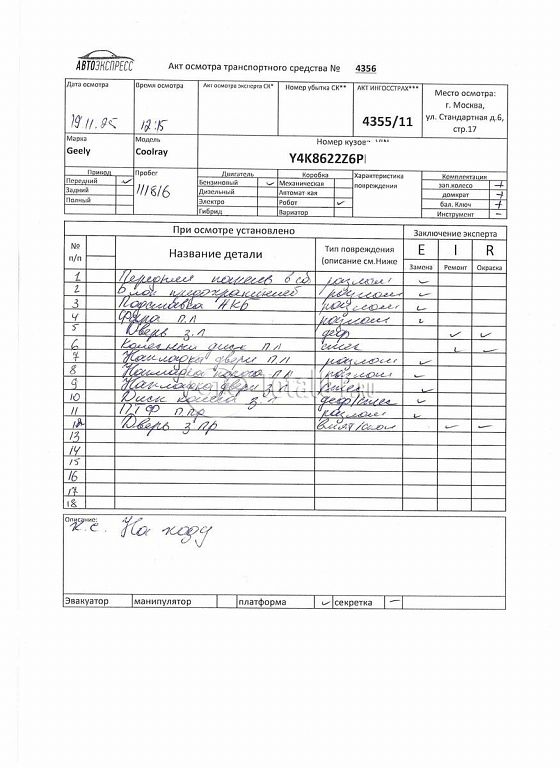 АВТОЭКСПРЕСС
Акт осмотра транспортного средства № 4356
Дата осмотра
19.11.25
Время осмотра
12:15
Акт осмотре эксперта СК*
Номер убытка СК**
АКТ ИНГОССТРАХ***
4355/11
Место осмотра:
г. Москва,
ул. Стандартная д.6,
стр.17
Марка
Geely
Модель
Coolray
Номер кузов
Y4K8622Z6P
Привод
Передний ✓
Задний
Полный
Пробег
111816
Двигатель
Бензиновый ✓
Дизельный
Электро
Гибрид
Коробка
Механическая
Автомат кая
Робот ✓
Вариатор
Характеристика
повреждения
Комплектация
зап.колесо +
домкрат +
бал. Ключ +
Инструмент –
При осмотре установлено
Заключение эксперта
№
п/п
Название детали
Тип повреждения
(описание см.Ниже
E I R
Замена Ремонт Окраска
1 Передняя панель в сб разлом ✓
2 Блок предохранителей разлом ✓
3 Подставка АКБ разлом ✓
4 Фара п.л разлом ✓
5 Дверь з.л деф ✓ ✓
6 Колесный диск п.л ✓ –
7 Накладка двери п.л разлом ✓
8 Накладка п.л разлом ✓
9 Накладка двери з.л ✓
10 Диск колеса з.л ✓
11 ПТФ п.пр разлом ✓
12 Дверь з.пр – –
13
14
15
16
17
18
Описание:
к.с. На ходу
Эвакуатор манипулятор платформа ✓ секретка –